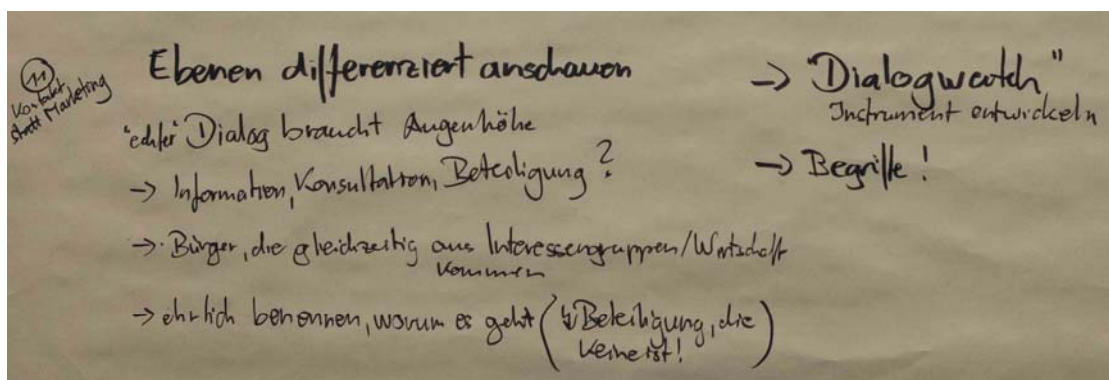 11
Kontakt
statt Marketing
Ebenen differenziert anschauen
"echter" Dialog braucht Augenhöhe
-> Information, Konsultation, Beteiligung?
-> Bürger, die gleichzeitig aus Interessengruppen/Wirtschaft
kommen
-> ehrlich benennen, worum es geht (↯ Beteiligung, die
keine ist!)
-> "Dialogwatch"
Instrument entwickeln
-> Begriffe!